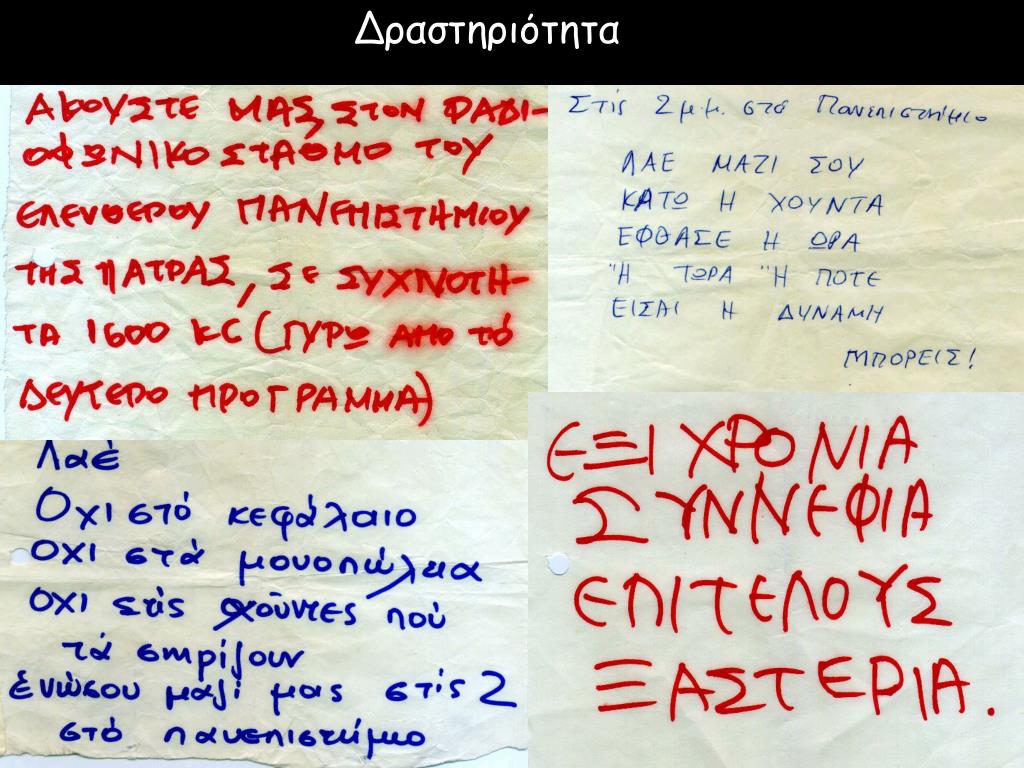 Δραστηριότητα
ΑΚΟΥΣΤΕ ΜΑΣ, ΣΤΟΝ ΡΑΔΙ-
ΟΦΩΝΙΚΟ ΣΤΑΘΜΟ ΤΟΥ
ΕΛΕΥΘΕΡΟΥ ΠΑΝΕΠΙΣΤΗΜΙΟΥ
ΤΗΣ ΠΑΤΡΑΣ, ΣΕ ΣΥΧΝΟΤΗ-
ΤΑ 1600 KC (ΓΥΡΩ ΑΠΟ ΤΟ
ΔΕΥΤΕΡΟ ΠΡΟΓΡΑΜΜΑ)
Στις 2 μ.μ. στο Πανεπιστήμιο
ΛΑΕ ΜΑΖΙ ΣΟΥ
ΚΑΤΩ Η ΧΟΥΝΤΑ
ΕΦΘΑΣΕ Η ΩΡΑ
Ή ΤΩΡΑ Ή ΠΟΤΕ
ΕΙΣΑΙ Η ΔΥΝΑΜΗ
ΜΠΟΡΕΙΣ!
Λαέ
Οχι στό κεφάλαιο
οχι στά μονοπώλια
οχι στίς χούντες πού
τά στηρίζουν
ἑνώσου μαζί μας στίς 2
στό πανεπιστήμιο
ΕΞΙ ΧΡΟΝΙΑ
ΣΥΝΝΕΦΙΑ
ΕΠΙΤΕΛΟΥΣ
ΞΑΣΤΕΡΙΑ.